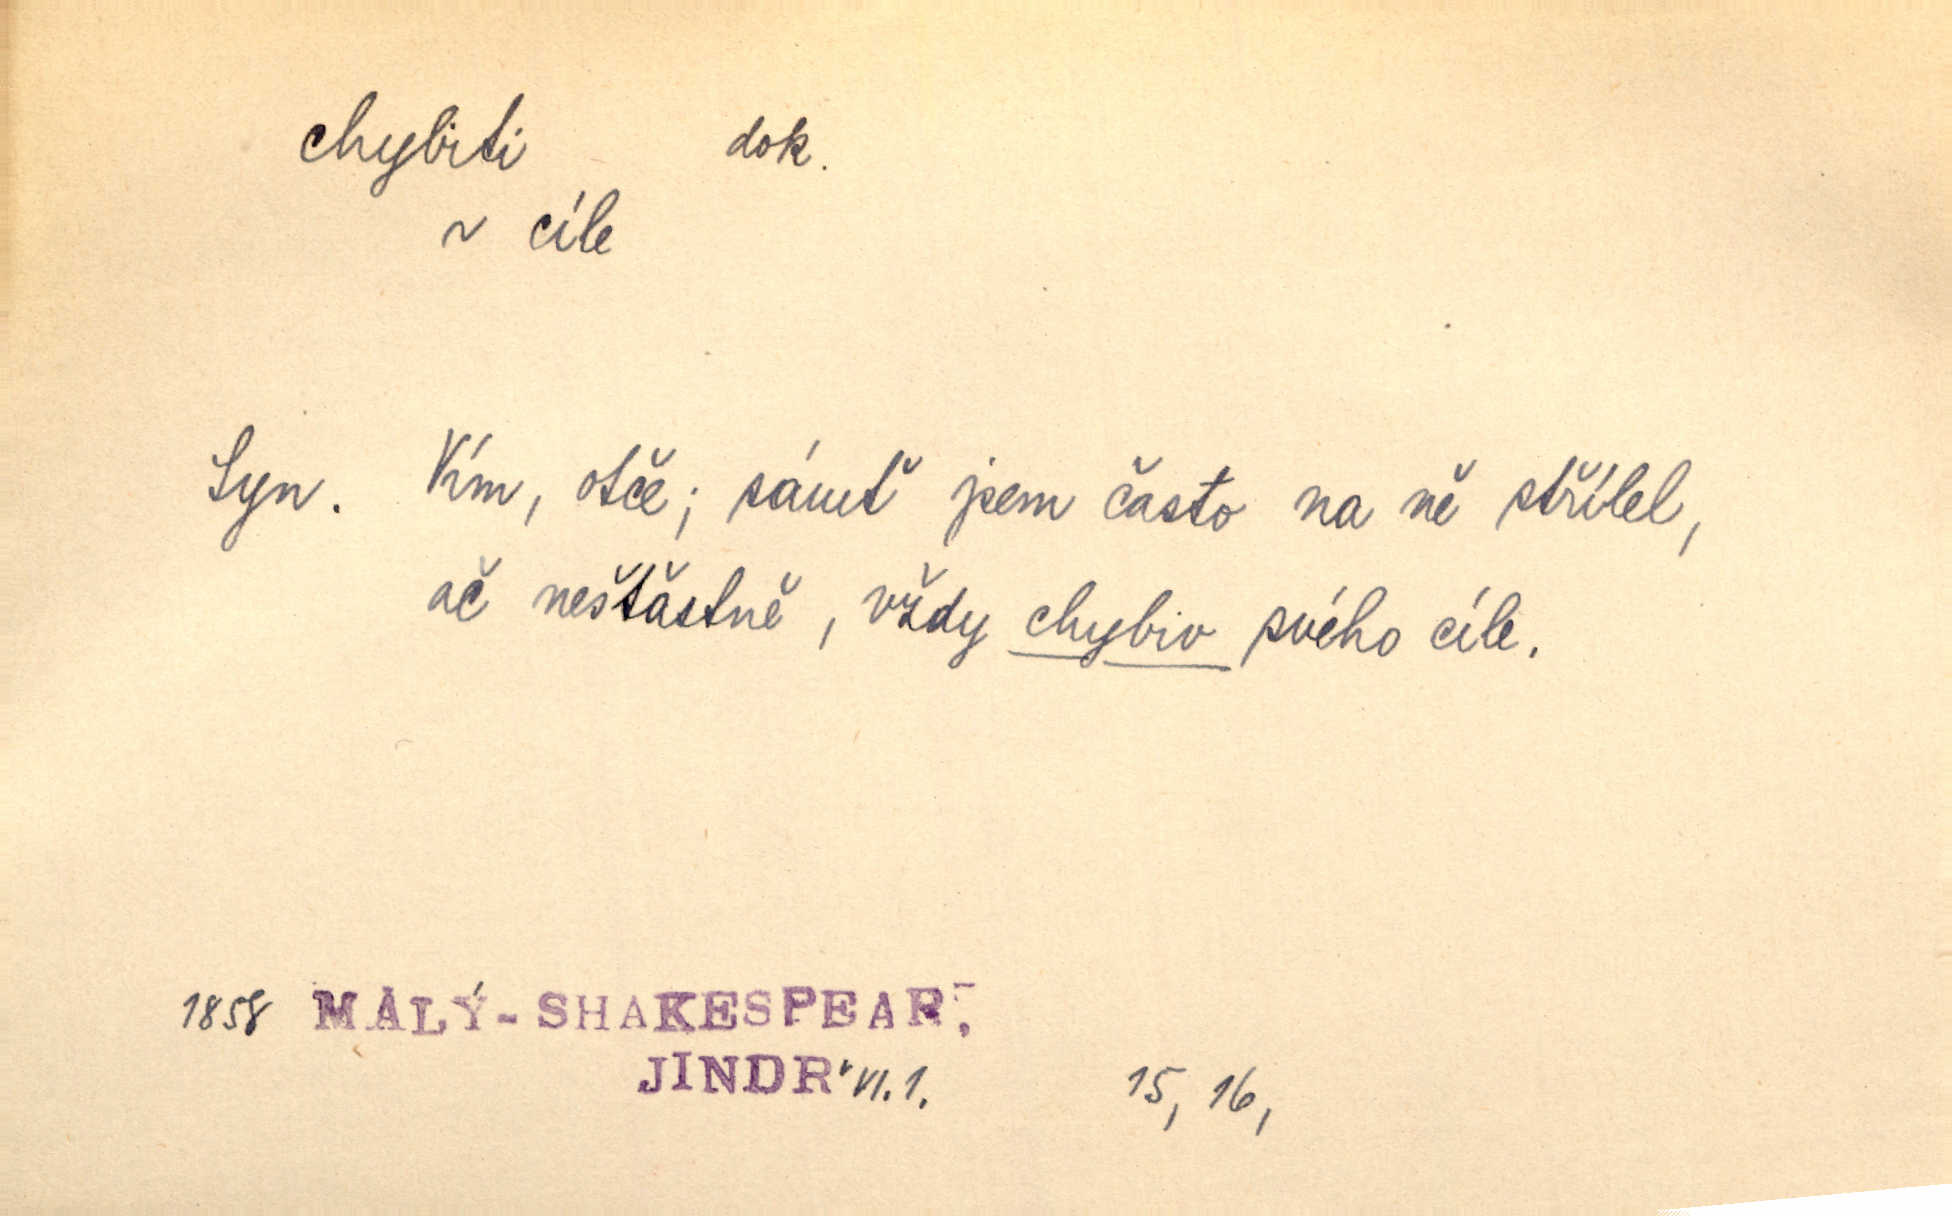 chybiti dok.
~ cíle
Syn. Vím, otče; sámť jsem často na ně střílel,
ač nešťastně, vždy chybiv svého cíle.
1858 MALÝ-SHAKESPEAR,
JINDR. VI. 1. 15, 16,